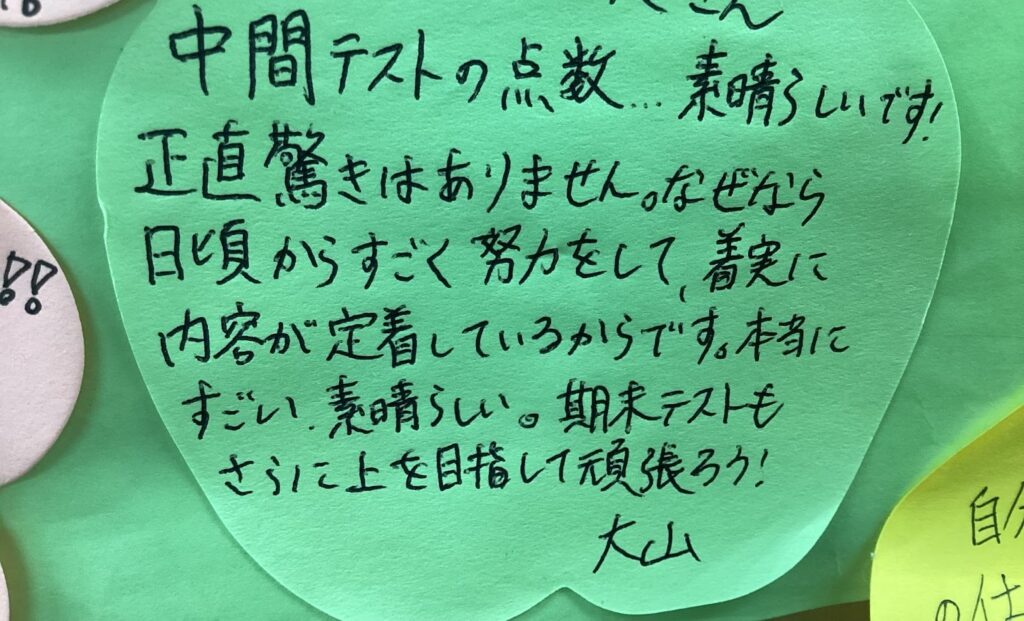 さん
中間テストの点数… 素晴らしいです!
正直驚きはありません。なぜなら
日頃からすごく努力をして、着実に
内容が定着しているからです。本当に
すごい.素晴らしい。期末テストも
さらに上を目指して頑張ろう!
大山
!!
自分
の仕